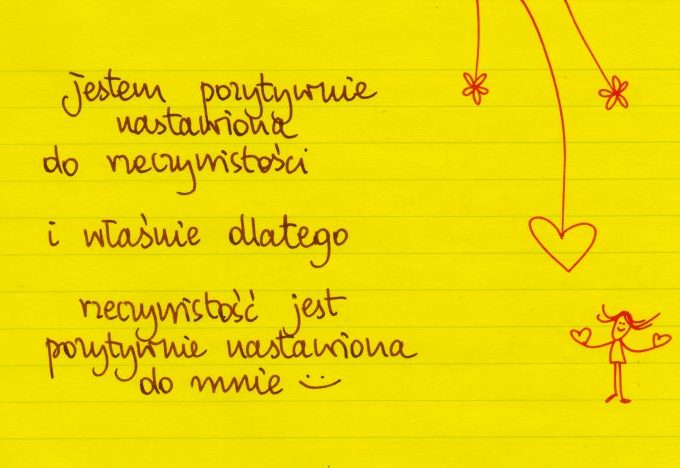 jestem pozytywnie
nastawiona
do rzeczywistości
i właśnie dlatego
rzeczywistość jest
pozytywnie nastawiona
do mnie :)